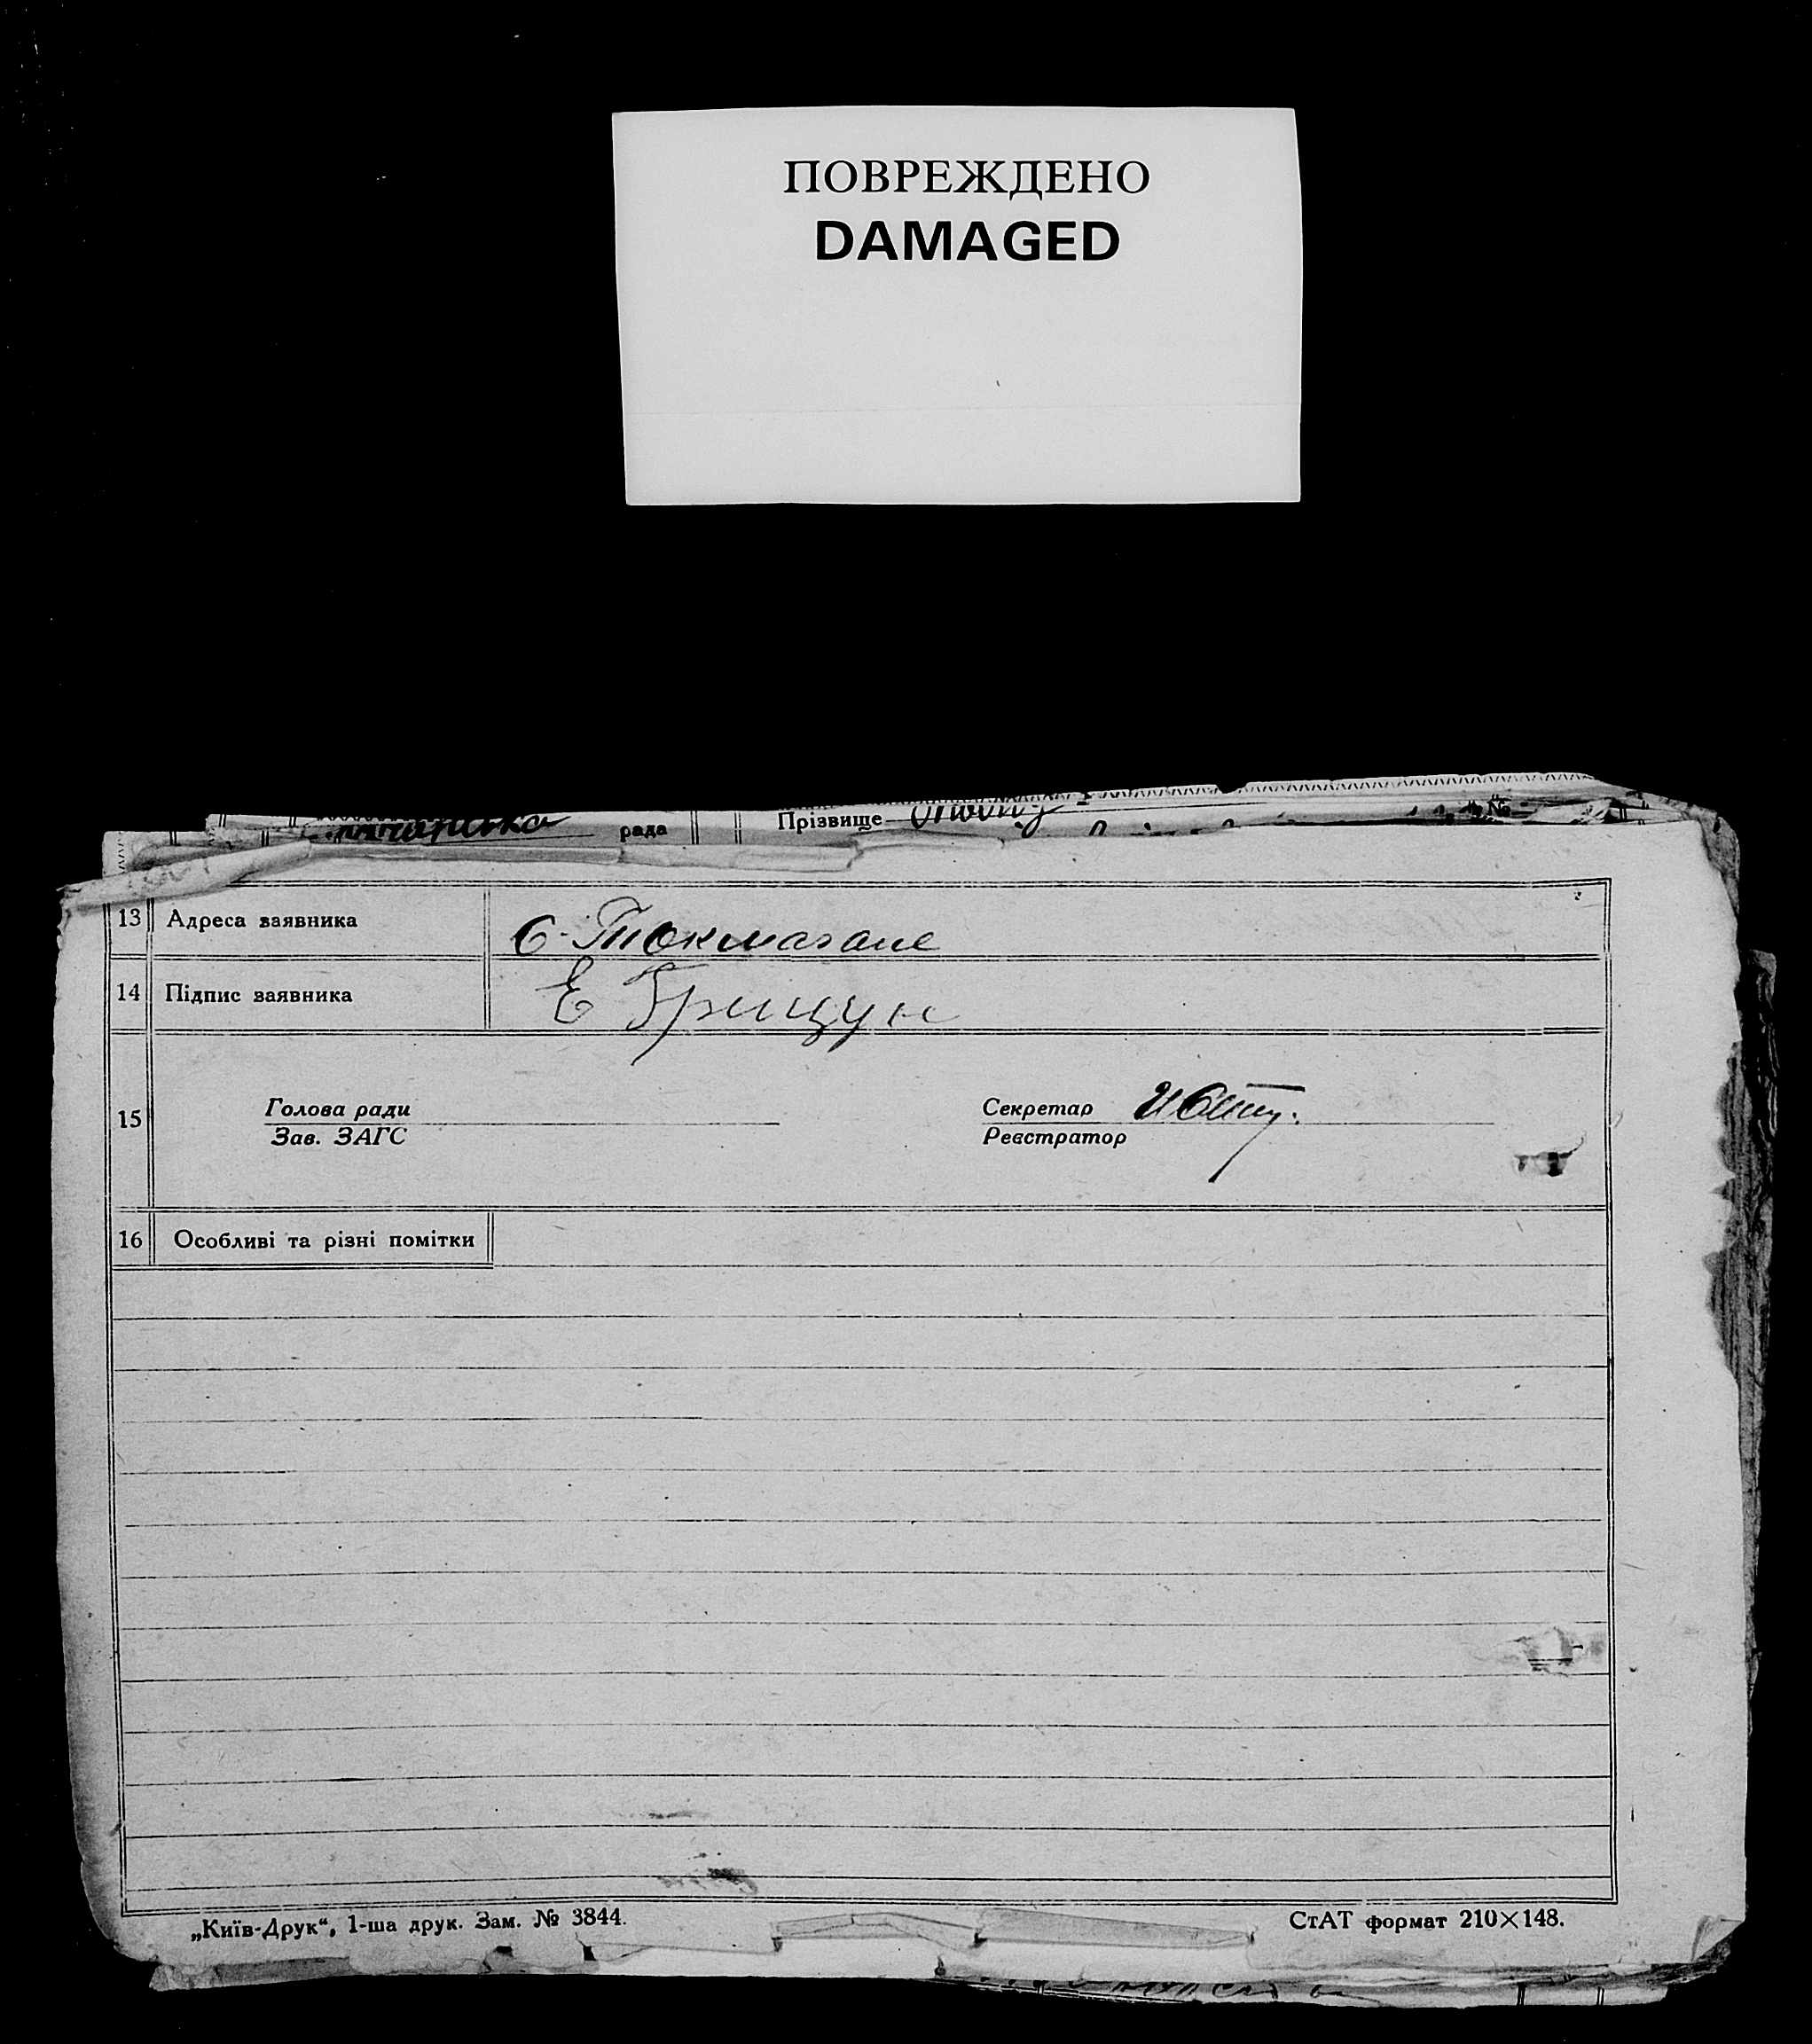 ПОВРЕЖДЕНО
DAMAGED
рада
Прізвище
№
13 Адреса заявника
с. Токмагане
14 Підпис заявника
Е Грищун
15
Голова ради
Зав. ЗАГС
Секретар
Реєстратор
16 Особливі та різні помітки
„Київ-Друк“, 1-ша друк. Зам. № 3844.
СтАТ формат 210×148.